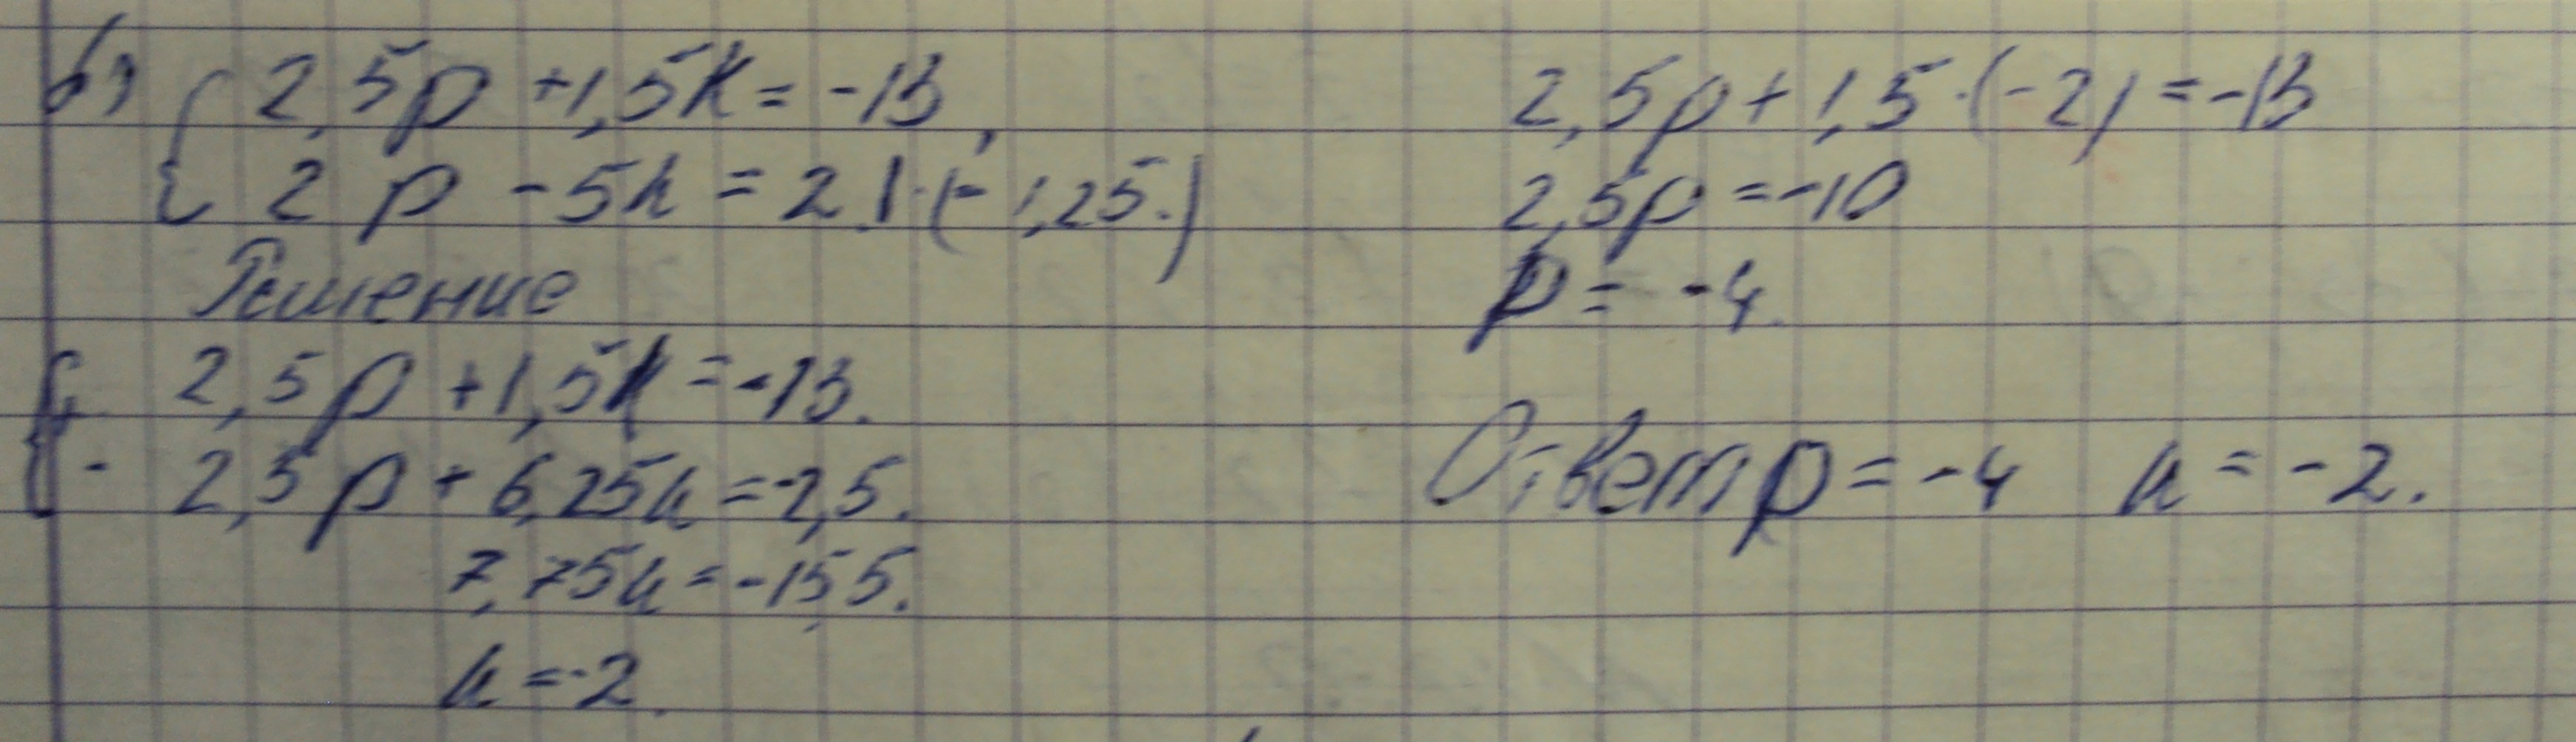 б) { 2,5p + 1,5k = -13,
2p - 5k = 2 | · (-1,25)
Решение
{ + 2,5p + 1,5k = -13.
- 2,5p + 6,25k = -2,5.
7,75k = -15,5.
k = -2.
2,5p + 1,5 · (-2) = -13
2,5p = -10
p = -4.
Ответ p = -4 k = -2.